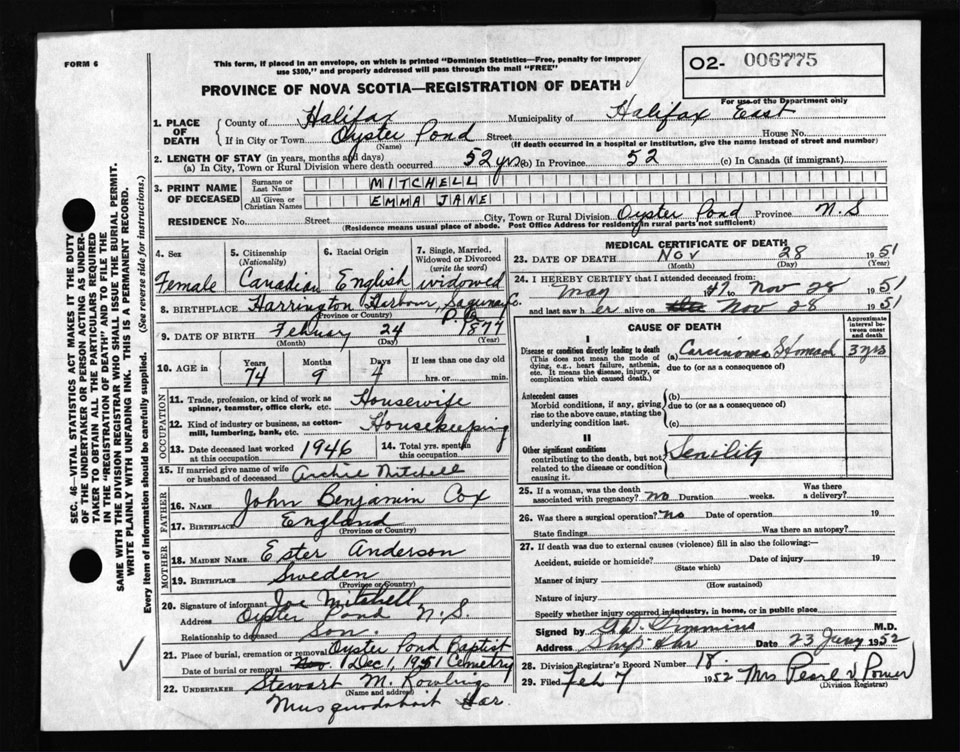 FORM 6
This form, if placed in an envelope, on which is printed "Dominion Statistics—Free, penalty for improper
use $300," and properly addressed will pass through the mail "FREE"
O2- 006775
For use of the Department only
PROVINCE OF NOVA SCOTIA—REGISTRATION OF DEATH
1. PLACE OF DEATH
County of Halifax Municipality of Halifax East
If in City or Town Oyster Pond Street House No.
(Name) (If death occurred in a hospital or institution, give the name instead of street and number)
2. LENGTH OF STAY (in years, months and days)
(a) In City, Town or Rural Division where death occurred 52 yrs (b) In Province 52 (c) In Canada (if immigrant)
3. PRINT NAME OF DECEASED
Surname or Last Name MITCHELL
All Given or Christian Names EMMA JANE
RESIDENCE No. Street City, Town or Rural Division Oyster Pond Province N.S
(Residence means usual place of abode. Post Office Address for residents in rural parts not sufficient)
4. Sex
Female
5. Citizenship (Nationality)
Canadian
6. Racial Origin
English
7. Single, Married, Widowed or Divorced (write the word)
widowed
8. BIRTHPLACE Harrington Harbour, Sagunay Co.
P.Q
(Province or Country)
9. DATE OF BIRTH Febuary 24 1877
(Month) (Day) (Year)
10. AGE in Years Months Days If less than one day old
74 9 4 hrs. or min.
OCCUPATION
11. Trade, profession, or kind of work as spinner, teamster, office clerk, etc. Housewife
12. Kind of industry or business, as cotton-mill, lumbering, bank, etc. Housekeeping
13. Date deceased last worked at this occupation 1946
14. Total yrs. spent in this occupation
15. If married give name of wife or husband of deceased Archie Mitchell
FATHER
16. NAME John Benjamin Cox
17. BIRTHPLACE England
(Province or Country)
MOTHER
18. MAIDEN NAME. Ester Anderson
19. BIRTHPLACE Sweden
(Province or Country)
20. Signature of informant Joe Mitchell
Address Oyster Pond N.S.
Relationship to deceased Son.
21. Place of burial, cremation or removal Oyster Pond Baptist
Date of burial or removal Nov. Dec 1, 1951 Cemetry
22. UNDERTAKER Stewart M. Rowlings
(Name and address)
Musquodoboit Har.
MEDICAL CERTIFICATE OF DEATH
23. DATE OF DEATH Nov 28 1951
(Month) (Day) (Year)
24. I HEREBY CERTIFY that I attended deceased from:
May to Nov 28 1951
and last saw her alive on Nov 28 1951
CAUSE OF DEATH
Approximate interval between onset and death
I
Disease or condition directly leading to death (a) Carcinoma Stomach 3 yrs
(This does not mean the mode of dying, e.g., heart failure, asthenia, etc. It means the disease, injury, or complication which caused death.)
due to (or as a consequence of)
Antecedent causes
Morbid conditions, if any, giving rise to the above cause, stating the underlying condition last.
(b)
due to (or as a consequence of)
(c)
II
Other significant conditions
contributing to the death, but not related to the disease or condition causing it.
Senility
25. If a woman, was the death associated with pregnancy? No Duration weeks. Was there a delivery?
26. Was there a surgical operation? No Date of operation 19
State findings Was there an autopsy?
27. If death was due to external causes (violence) fill in also the following:—
Accident, suicide or homicide? Date of injury 19
(State which)
Manner of injury
(How sustained)
Nature of injury
Specify whether injury occurred in industry, in home, or in public place
Signed by M.D.
Address Date 23 Jany 1952
28. Division Registrar's Record Number 18.
29. Filed Feb 7 1952 Mrs Pearl V Power
(Division Registrar)
SEC. 46—VITAL STATISTICS ACT MAKES IT THE DUTY
OF THE UNDERTAKER OR PERSON ACTING AS UNDER-
TAKER TO OBTAIN ALL THE PARTICULARS REQUIRED
IN THE "REGISTRATION OF DEATH" AND TO FILE THE
SAME WITH THE DIVISION REGISTRAR WHO SHALL ISSUE THE BURIAL PERMIT.
WRITE PLAINLY WITH UNFADING INK. THIS IS A PERMANENT RECORD.
Every item of information should be carefully supplied. (See reverse side for instructions.)